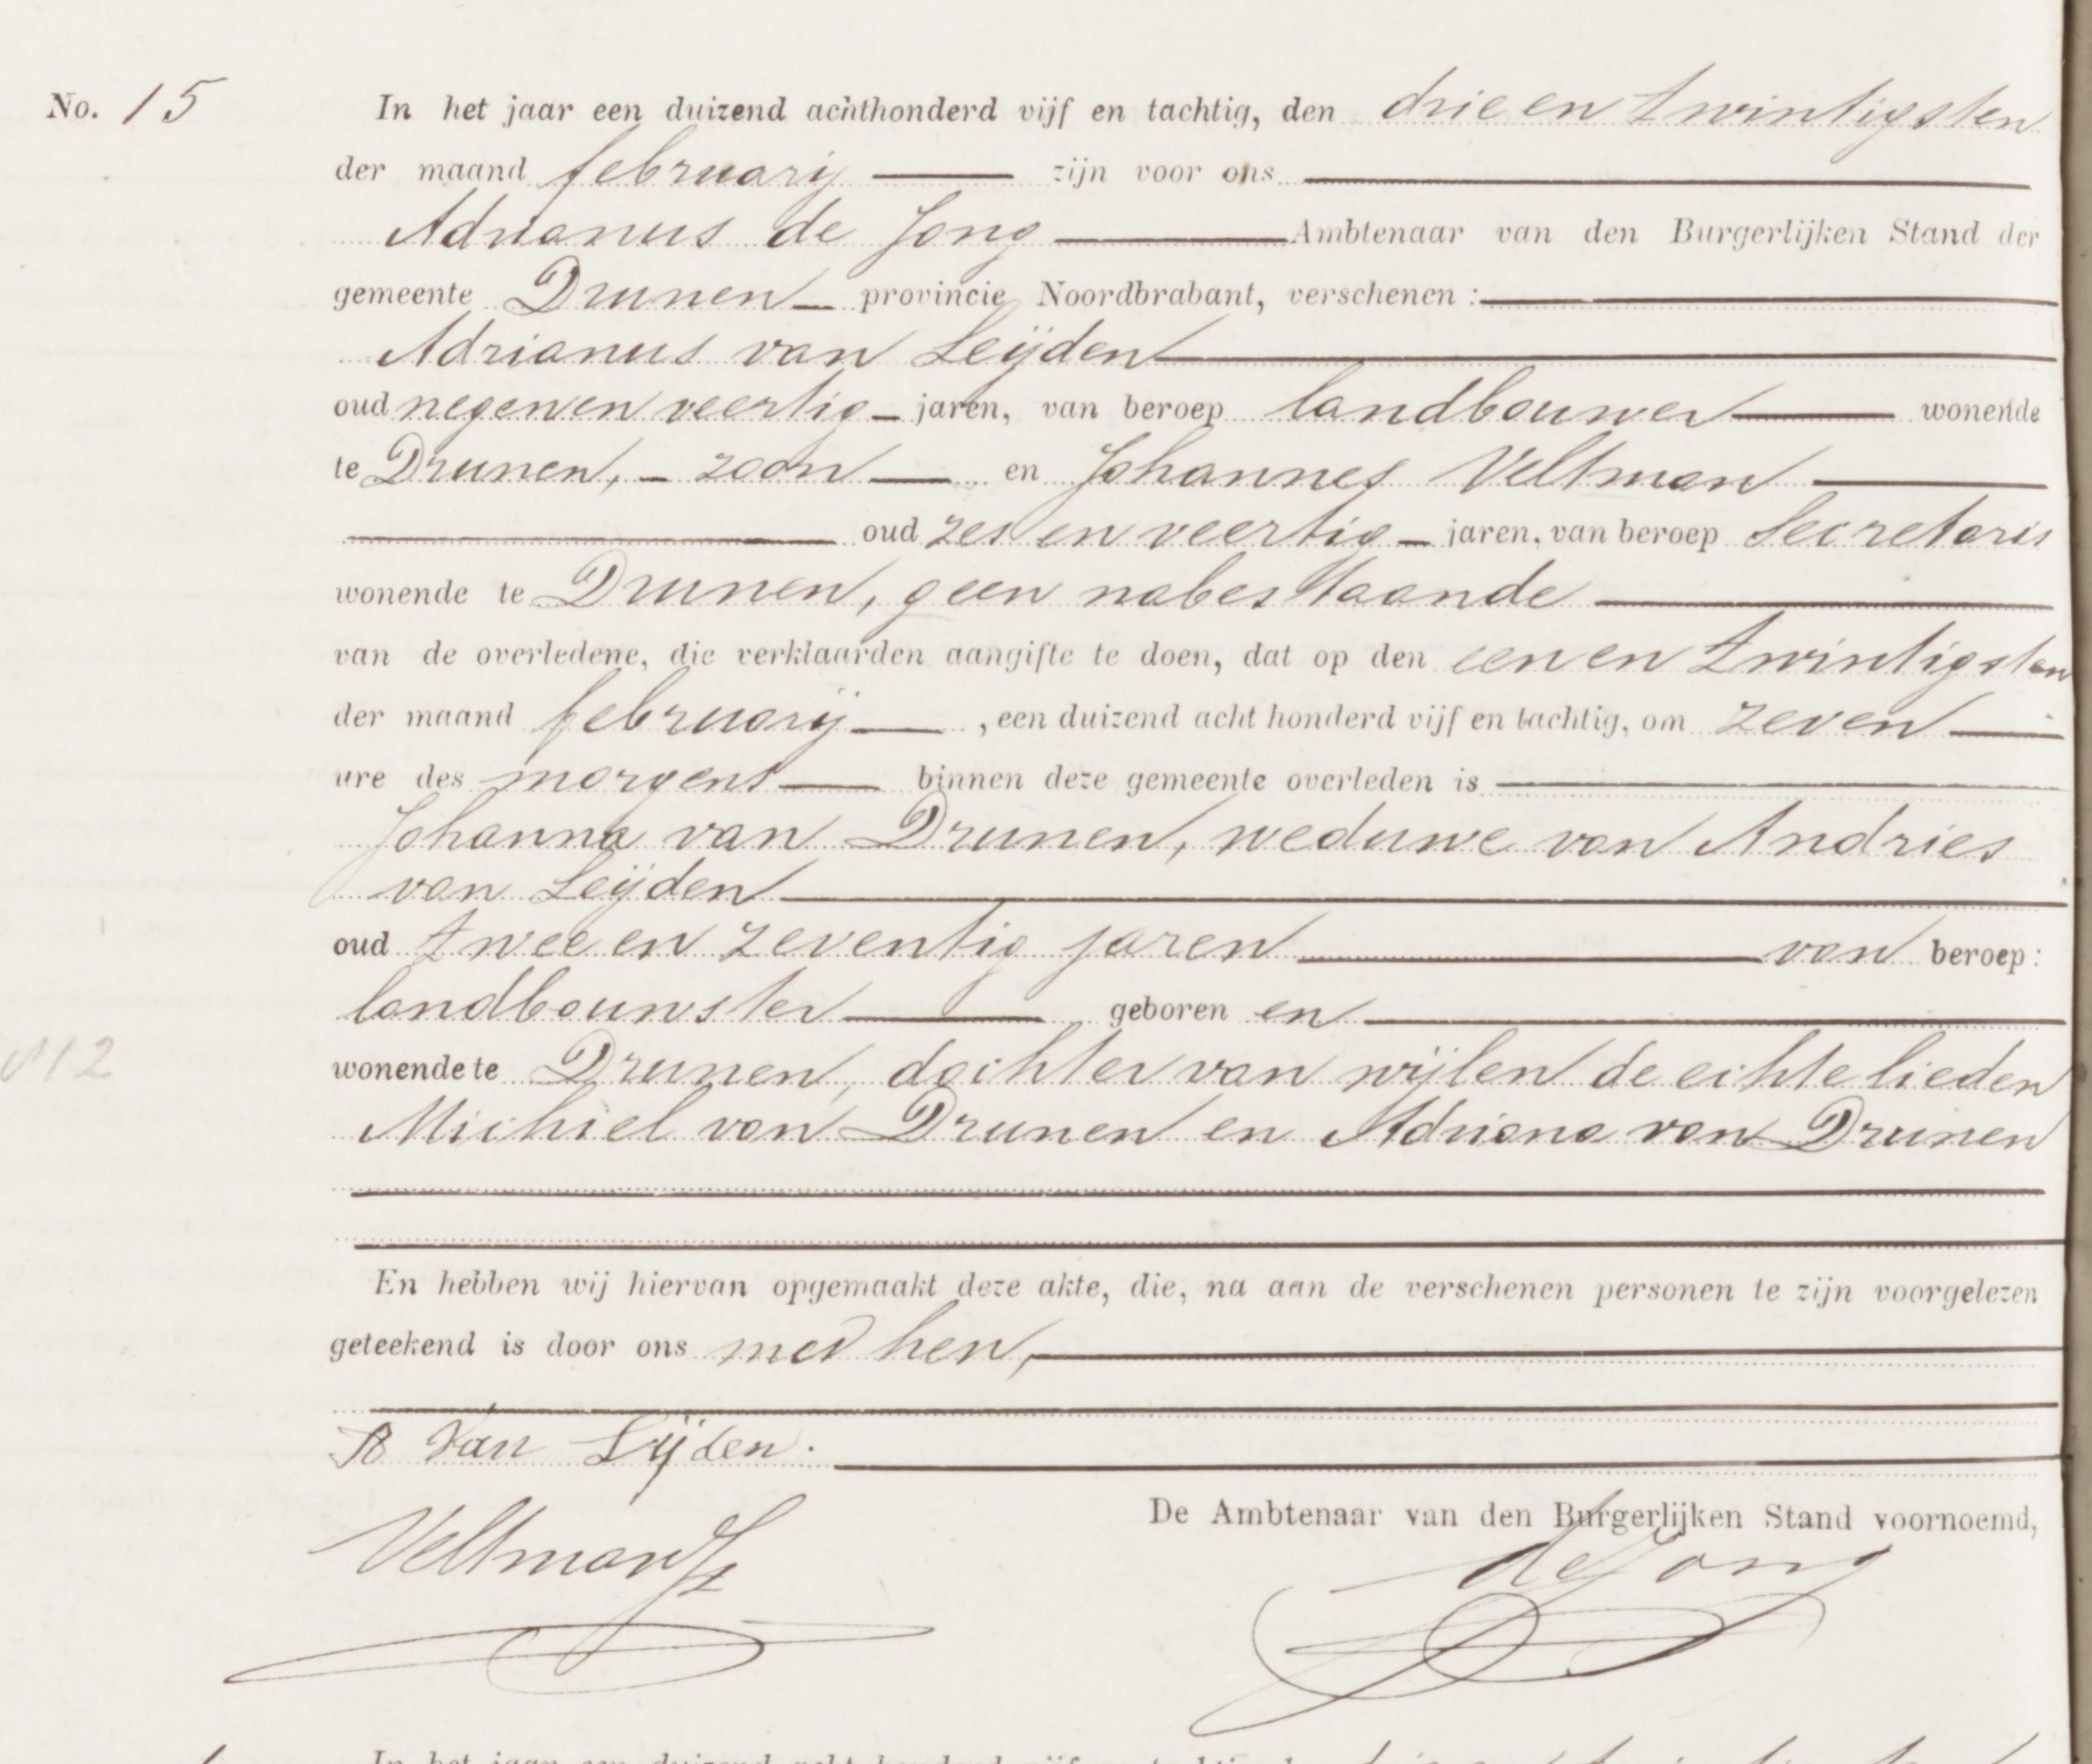 No. 15 In het jaar een duizend achthonderd vijf en tachtig, den drie en twintigsten
der maand februarij zijn voor ons
Adrianus de Jong Ambtenaar van den Burgerlijken Stand der
gemeente Drunen provincie Noordbrabant, verschenen :
Adrianus van Leijden
oud negen en veertig jaren, van beroep landbouwer wonende
te Drunen, zoon en Johannes Veltman
oud zes en veertig jaren, van beroep Secretaris
wonende te Drunen, geen nabestaande
van de overledene, die verklaarden aangifte te doen, dat op den een en twintigsten
der maand februarij , een duizend acht honderd vijf en tachtig, om zeven
ure des morgens binnen deze gemeente overleden is
Johanna van Drunen, weduwe van Andries
van Leijden
oud twee en zeventig jaren van beroep:
landbouwster geboren en
wonende te Drunen, dochter van wijlen de echtelieden
Michiel van Drunen en Adriana van Drunen
En hebben wij hiervan opgemaakt deze akte, die, na aan de verschenen personen te zijn voorgelezen
geteekend is door ons met hen,
A Van Lijden.
Veltman
De Ambtenaar van den Burgerlijken Stand voornoemd,
de Jong
In het jaar een duizend acht honderd vijf en tachtig